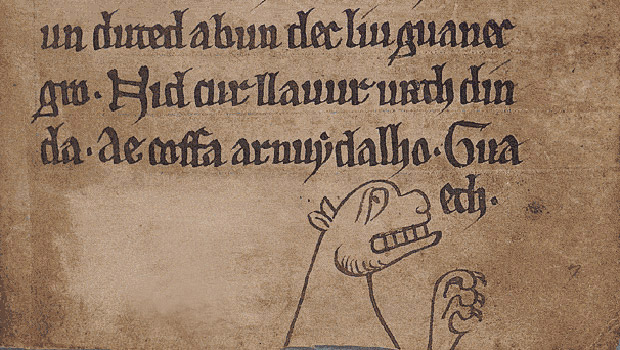 un duted abun dec liu guanec
gro· Nid cur llauur urth din
da· Ae coffa arnuẏ dalho· Gua
ech·